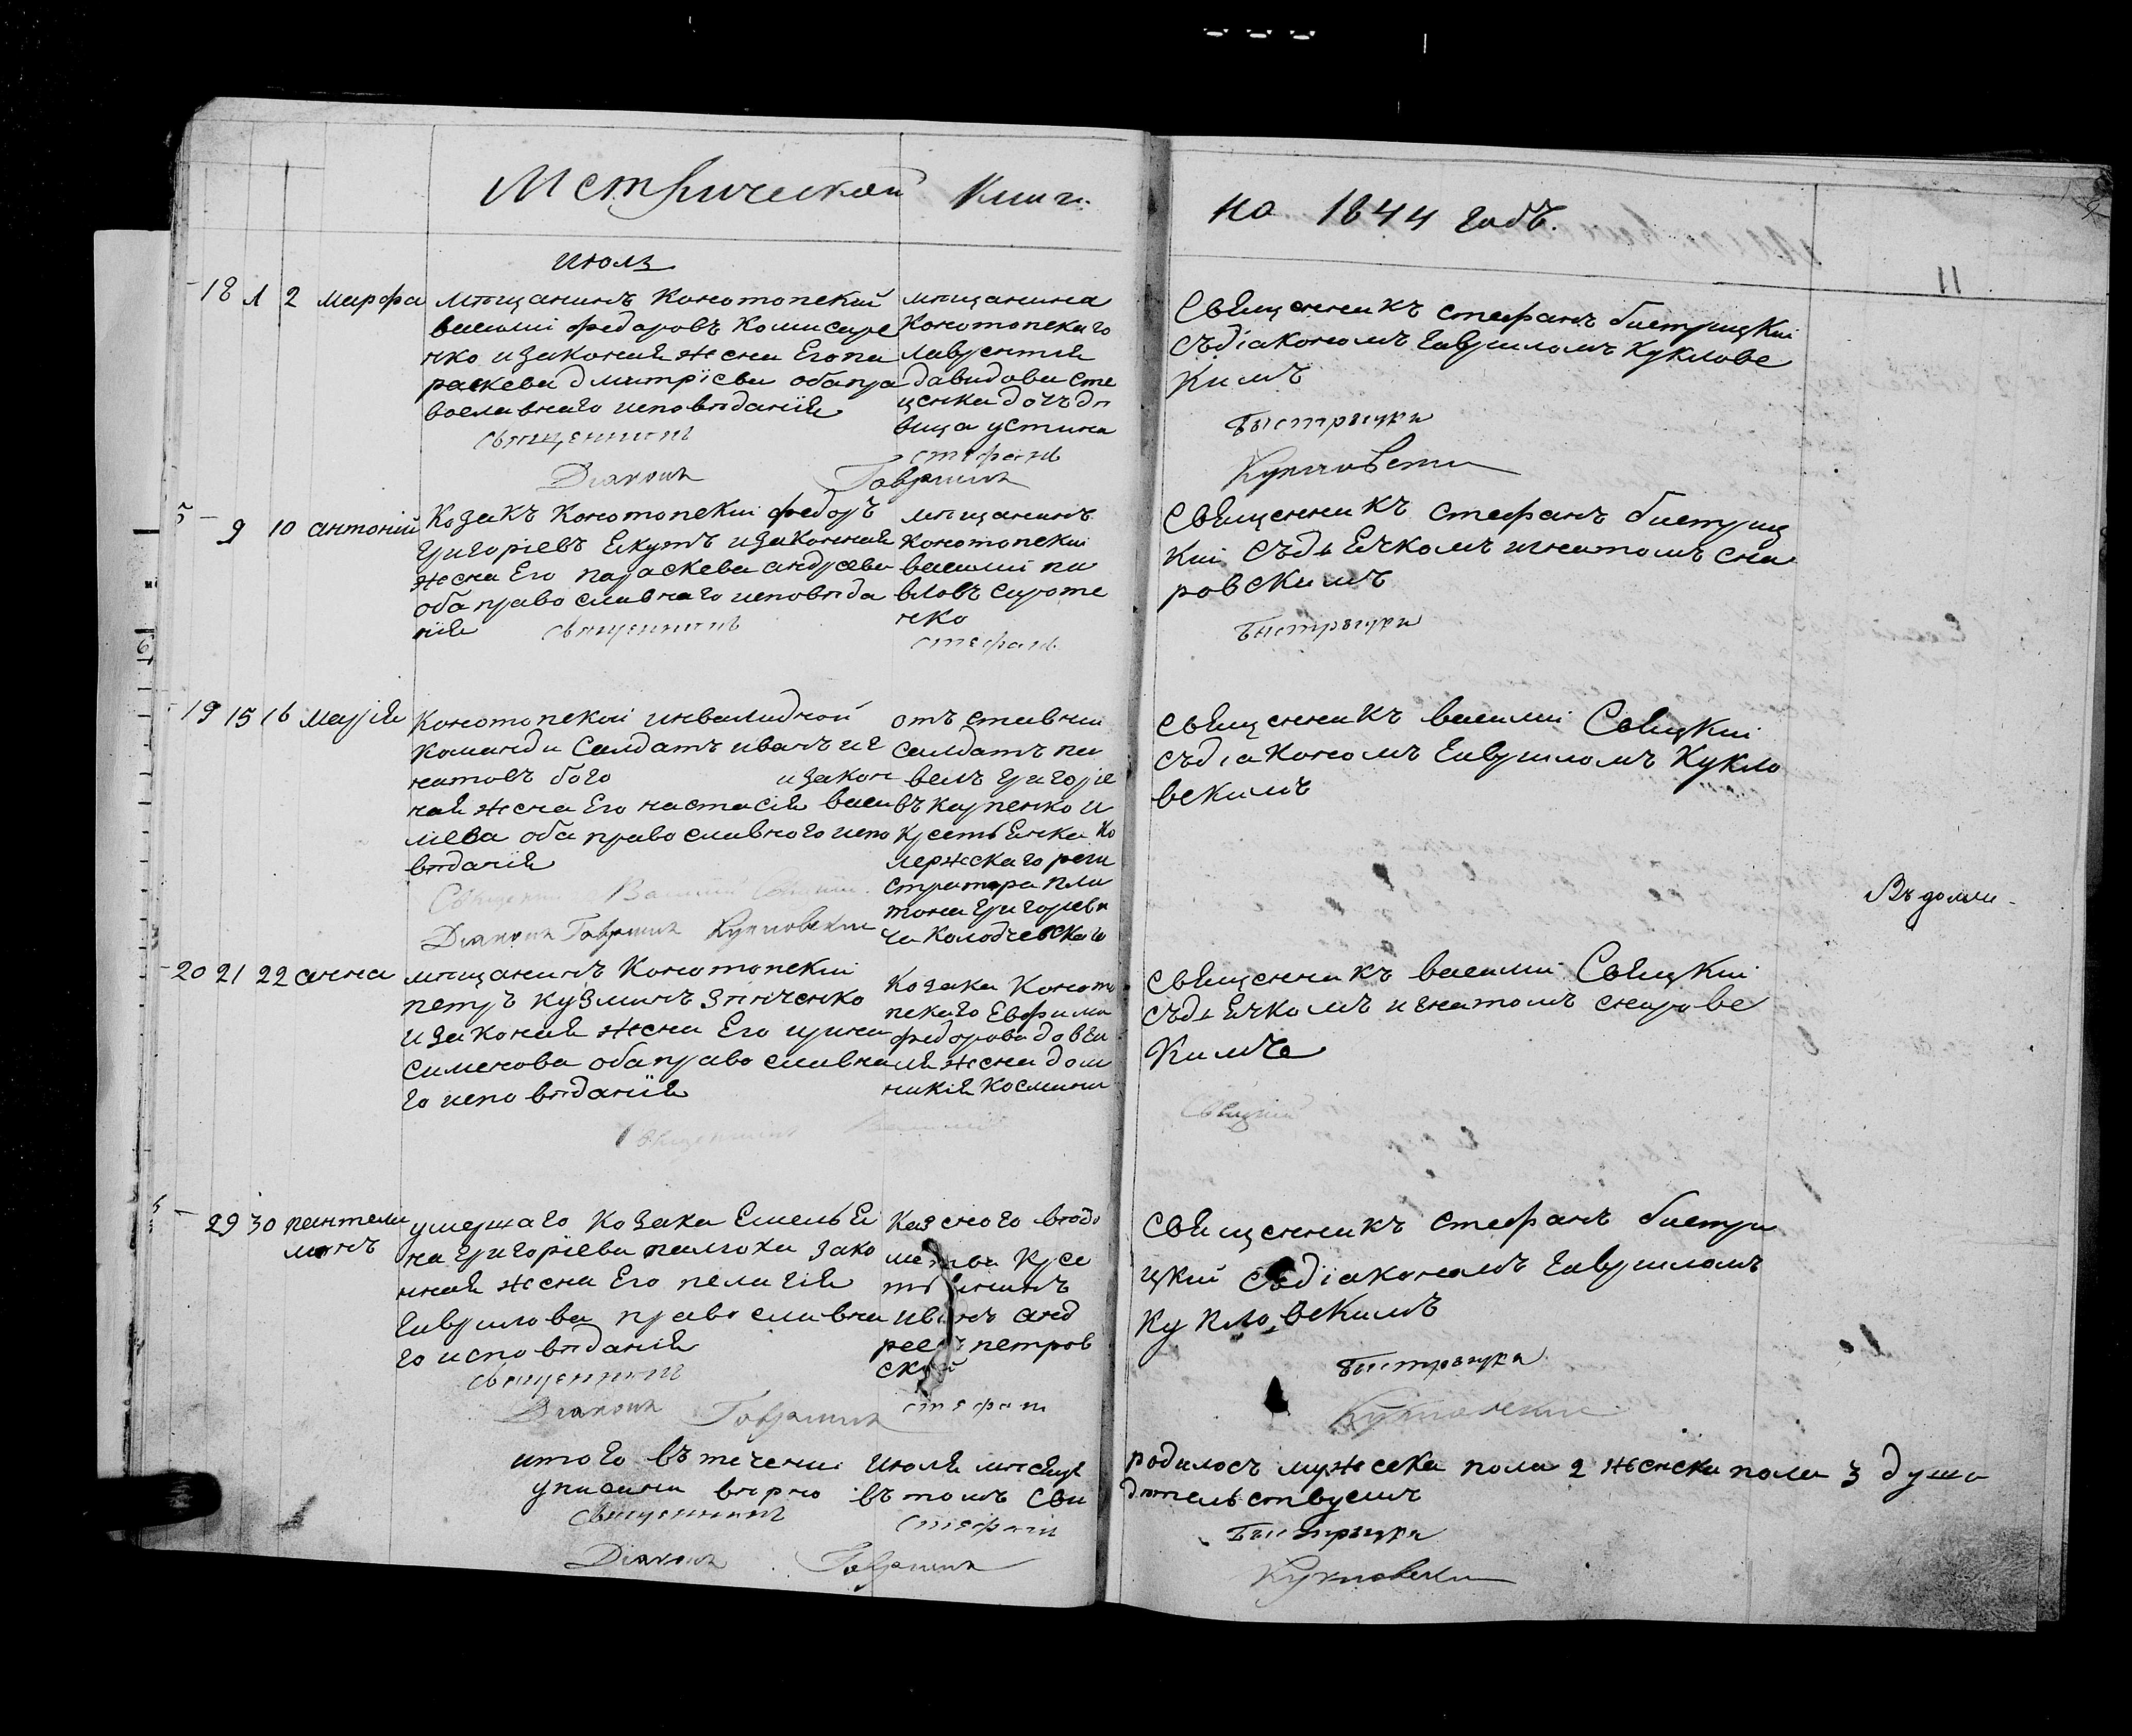 Метрической Книги
на 1844 годъ.
11
Июль
18 1 2 марфа
мѣщанинъ Конотопский
василий федоровъ Комисаре
нко и законая жена Его па
раскева дмитрїева оба пра
вославнаго исповѣданїя
мѣщанина
Конотопскаго
лаврентия
давидова сте
ценка дочъ дѣ
вица устина
Священникъ стефанъ бистрицкий
съ дїакономъ гаврииломъ Кукловс
кимъ
священникъ стефанъ Быстрыцки
Диаконъ Гавриилъ Кукловски
5 9 10 антоний
Козакъ Конотопский федоръ
григорїевъ Екутъ и законная
жена Его параскева андреева
оба православнаго исповѣда
нїя
мѣщанинъ
конотопский
василий па
вловъ сироте
нко
Священникъ стефанъ бистриц
кий съ дячкомъ игнатомъ сна
ровскимъ
священникъ стефанъ Быстрыцки
19 15 16 Марїя
Конотопской инвалидной
команди салдатъ иванъ иг
натовъ бого и закон
ная жена Его настасїя васи
лева оба православного испо
вѣданїя
отъставний
салдатъ па
велъ григорїе
въ карпенко и
крестянка ко
лержскаго реги
стратора пла
тона григореви
ча Колодчевскаго
Священникъ василий Свяцкий
съ дїакономъ гаврииломъ Кукло
вскимъ
Священникъ Василий Свяцкий
Диаконъ Гавриилъ Кукловский
20 21 22 анна
мѣщанинъ Конотопский
петръ кузминъ зѣнченко
и законая жена Его ирина
сименова оба православна
го исповѣданїя
Козака Коното
пскаго Евфима
федорова довга
ля жена дом
никїя Космини
Священникъ василий Свяцкий
съ дячкомъ игнатомъ снаровс
кимъ
Священникъ Василий Свяцкий
5 29 30 пантели
монъ
умержаго Козака Емеля
на григорїева палюхи зако
нная жена Его пелагїя
гаврилова православна
го исповѣданїя
Казеного вѣдо
мства Кресть
янинъ
иванъ анд
реевъ петров
ский
Священникъ стефанъ бистри
цкий съ дїакономъ гаврииломъ
кукловскимъ
священникъ стефанъ Быстрыцки
Диаконъ Гавриилъ Кукловский
итого въ течени Июля мѣсяца родилось мужеска пола 2 женска пола 3 душо
уписани вѣрно въ томъ свидѣтельствуемъ
священникъ стефанъ Быстрыцки
Диаконъ Гавриилъ Кукловски